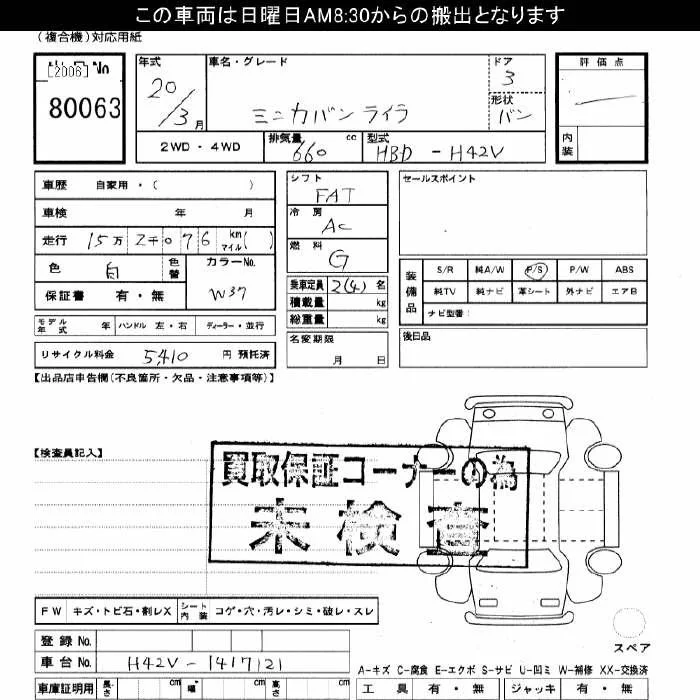 この車両は日曜日AM8:30からの搬出となります
(複合機)対応用紙
[2006] No
80063
年式 車名・グレード ドア 評価点
20/3月 ミニカバン ライラ 3
形状 バン
2WD・4WD 排気量 660 cc 型式 HBD - H42V 内装
車歴 自家用・( ) シフト FAT セールスポイント
車検 年 月 冷房 AC
走行 15万2千076 km マイル( ) 燃料 G
色 白 色替 カラーNo. W37
保証書 有・無
乗車定員 2(4)名
積載量 kg
総重量 kg
装備品 S/R 純A/W P/S P/W ABS
純TV 純ナビ 革シート 外ナビ エアB
ナビ型番:
モデル年式 年 ハンドル 左・右 ディーラー・並行
名変期限 月 日
後日品
リサイクル料金 5,410 円 預託済
【出品店申告欄(不良箇所・欠品・注意事項等)】
【検査員記入】
買取保証コーナーの為
未検査
FW キズ・トビ石・割レX シート内装 コゲ・穴・汚レ・シミ・破レ・スレ
登録No.
車台No. H42V-1417121
スペア
A-キズ C-腐食 E-エクボ S-サビ U-凹ミ W-補修 XX-交換済
車庫証明用 長さ cm 幅 cm 高さ cm
工具 有・無 ジャッキ 有・無